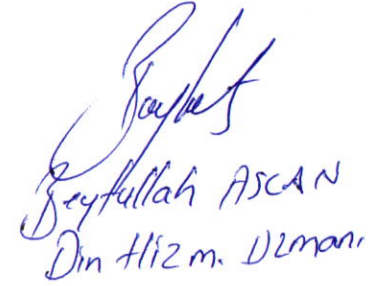 Beytullah ASCAN
Din Hizm. Uzmanı